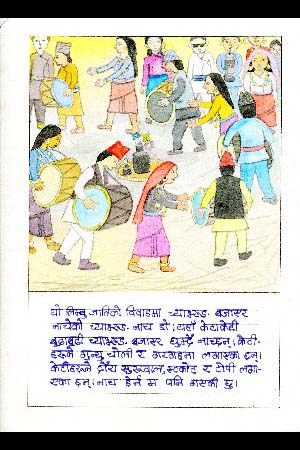 यो लिम्बु जातिको विवाहमा च्याब्रुङ बजाएर
नाचेको च्याब्रुङ नाच हो। यहाँ केटाकेटी
बुढाबुढी च्याब्रुङ बजाएर घुम्दै नाच्छन्। केटी-
हरूले गुन्यू चोलो र लगाएका छन्।
केटीहरूले दौरा सुरुवाल, स्टकोट र टोपी लगा-
एका छन्। नाच हेर्न म पनि गएकी छु।